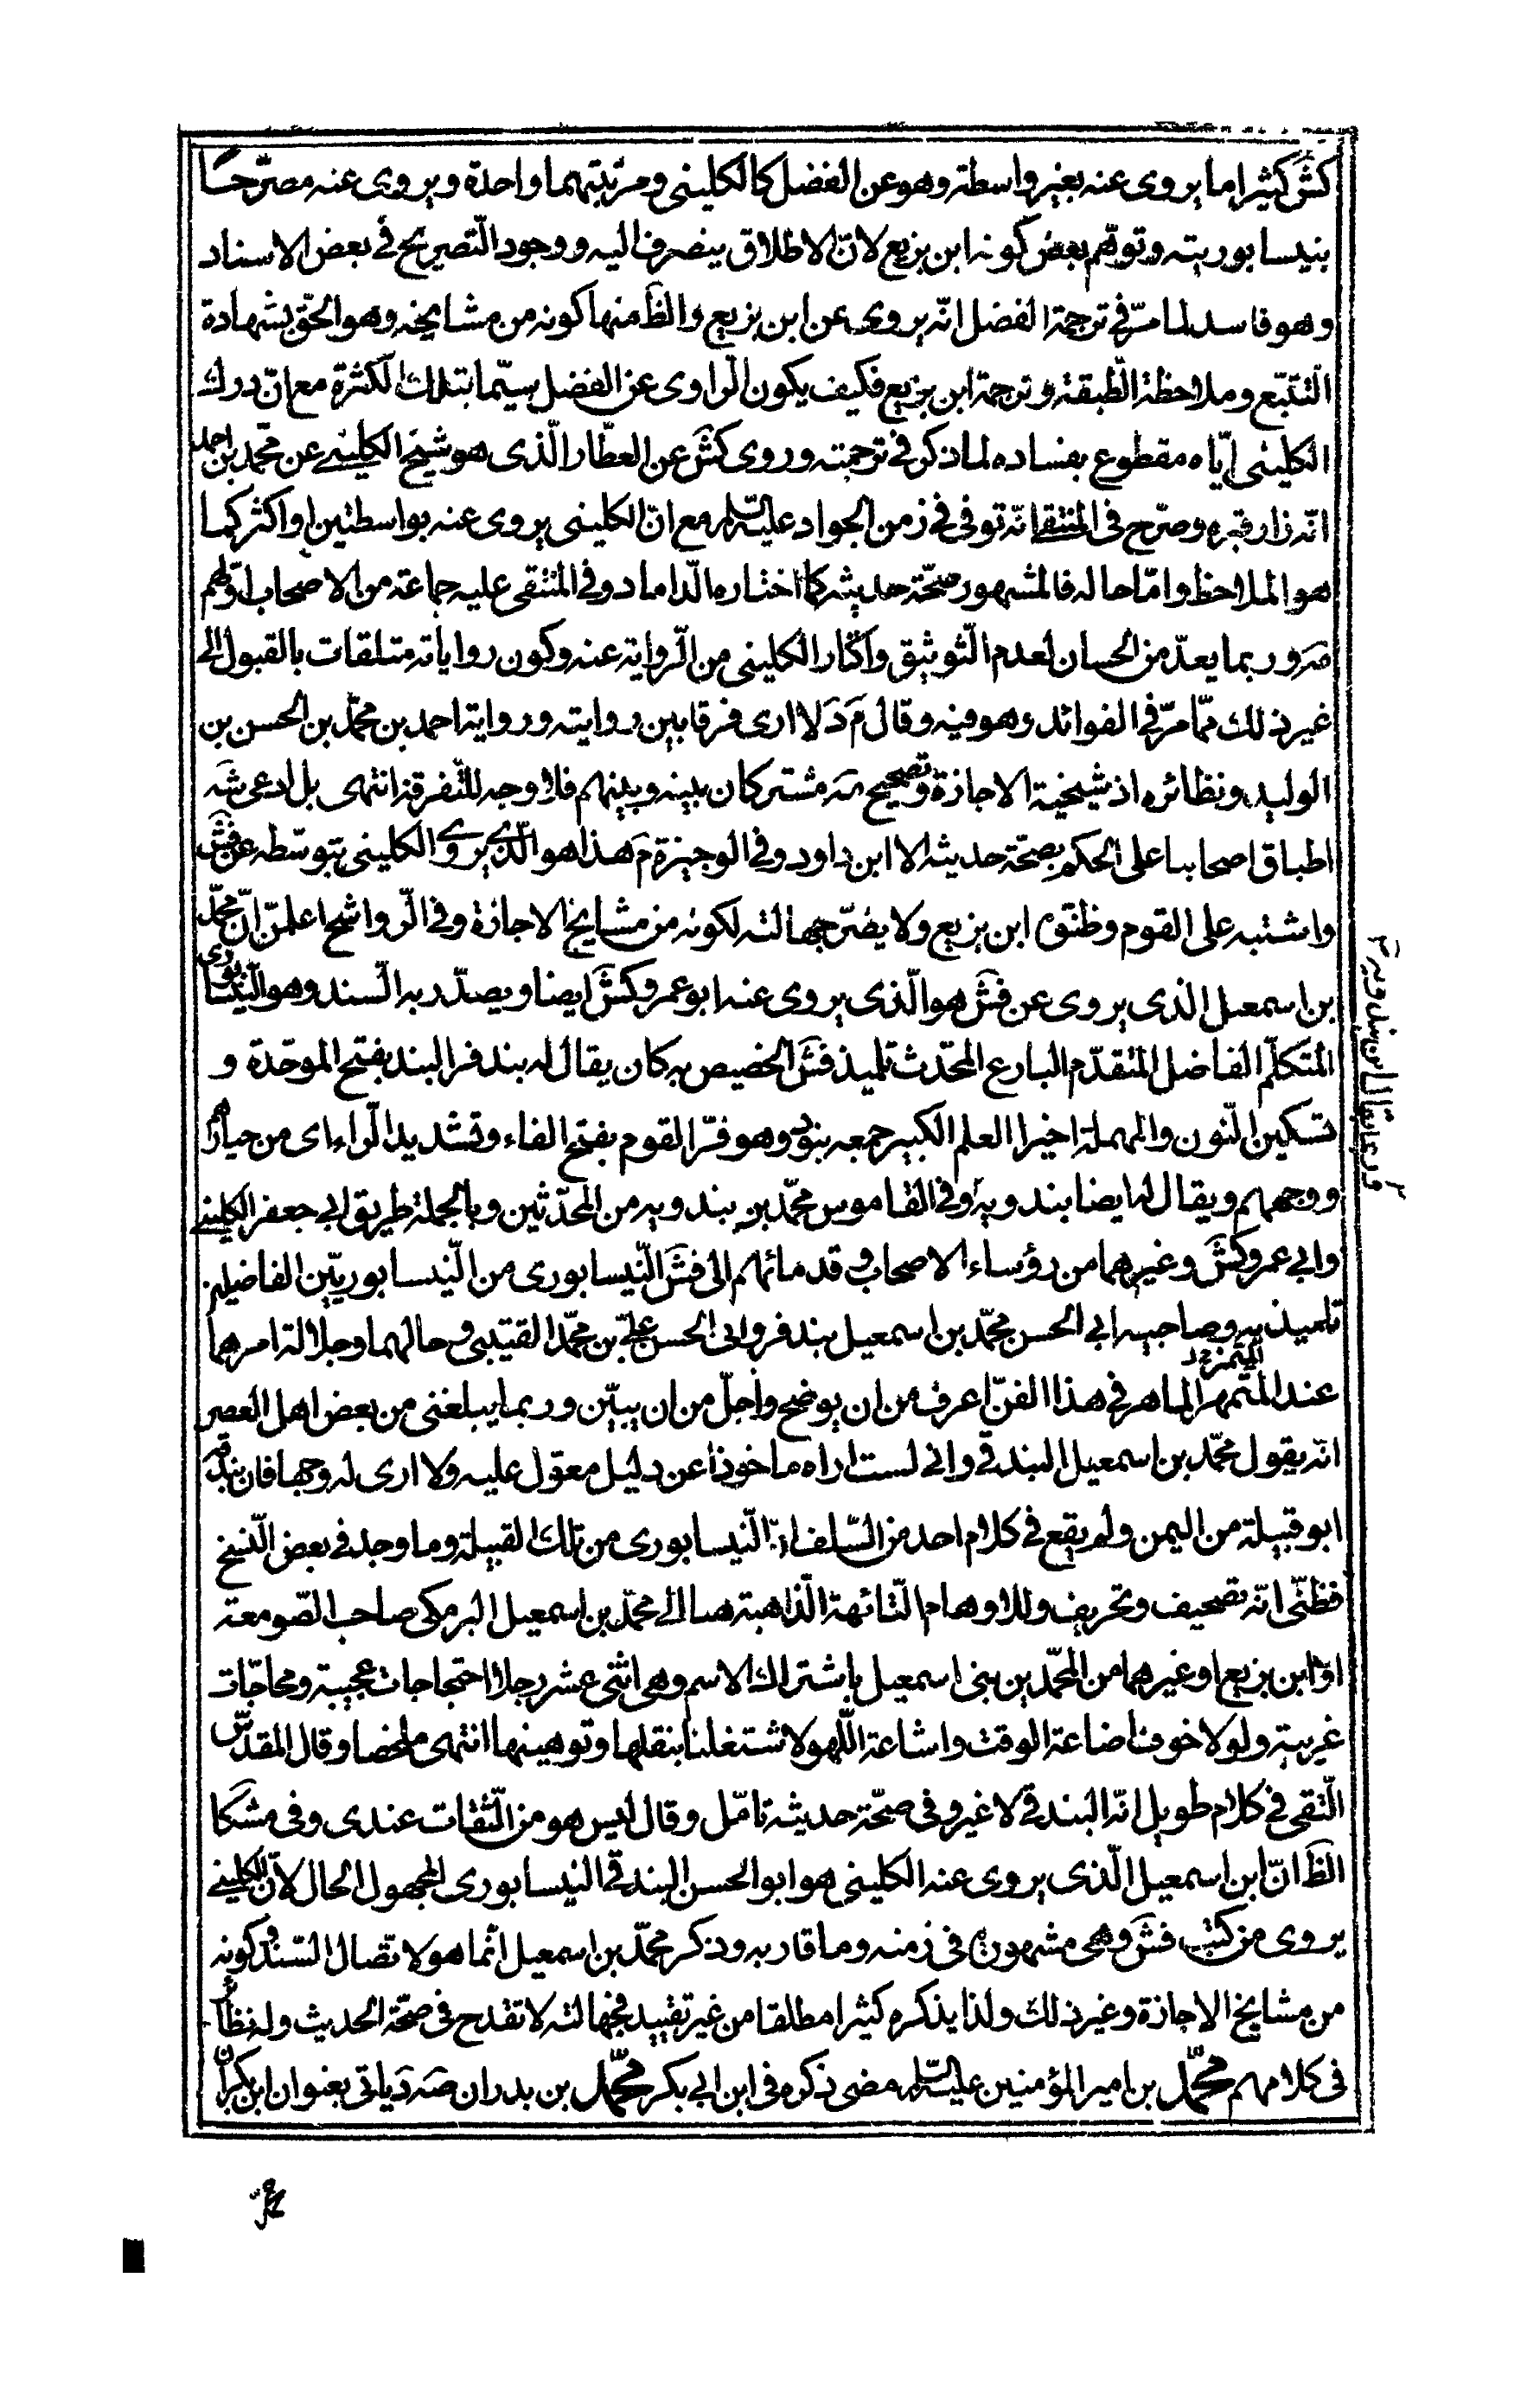 كش كثيرا ما يروى عنه بغير واسطة وهو عن الفضل كالكلينى ومرتبتهما واحدة ويروى عنه مصرّحا
بنيسابوريته وتوهّم بعض كونه ابن بزيع لانّ الاطلاق ينصرف اليه ووجود التصريح فى بعض الاسناد
وهو فاسد لما مرّ فى ترجمة الفضل انّه يروى عن ابن بزيع والظ منها كونه من مشايخه وهو الحقّ بشهادة
التتبّع وملاحظة الطّبقة وترجمة ابن بزيع فكيف يكون الرّاوى عن الفضل سيّما بتلك الكثرة مع انّ درك
الكلينى ايّاه مقطوع بفساده لما ذكر فى ترجمته وروى كش عن العطّار الّذى هو شيخ الكلينى عن محمّد بن احمد
انّه زار قبره وصرّح فى المنتقى انّه توفى فى زمن الجواد عليه السلام مع انّ الكلينى يروى عنه بواسطتين او اكثر كما
هو الملاحظ وامّا حاله فالمشهور صحّة حديثه كما اختاره الدّاماد وفى المنتقى عليه جماعة من الاصحاب اوّلهم
مه وربما يعدّ من الحسان لعدم التّوثيق واكثار الكلينى من الرّواية عنه وكون رواياته متلقات بالقبول الى
غير ذلك ممّا مرّ فى الفوائد وهو فيه وقال م د لا ارى فرقا بين روايته ورواية احمد بن محمّد بن الحسن بن
الوليد ونظائره اذ شيخية الاجازة وتصحيح مه مشتركان بينه وبينهم فلا وجه للتّفرقة انتهى بل ادعى شه
اطباق اصحابنا على الحكم بصحّة حديثه الا ابن داود وفى الوجيزة م هذا هو الّذى يروى الكلينى بتوسّطه عن فش
واشتبه على القوم وظنّوه ابن بزيع ولا يضرّ جهالته لكونه من مشايخ الاجازة وفى الرّواشح اعلمنّ انّ محمّد
بن اسمعيل الذى يروى عن فش هو الّذى يروى عنه ابو عمرو كش ايضا ويصدّر به السّند وهو النّيسابورى
المتكلّم الفاضل المتقدّم البارع المحّدث تلميذ فش الخصيص به كان يقال له بندفر البند بفتح الموحّدة و
تسكين النّون والمهملة اخيرا العلم الكبير جمعه بنود وهو فرّ القوم بفتح الفاء وتشديد الرّاء اى من خيارهم
ووجههم ويقال له ايضا بندويه وفى القاموس محمّد بن بندويه من المحدّثين وبالجملة طريق ابى جعفر الكلينى
وابى عمرو كش وغيرهما من رؤساء الاصحاب وقدمائهم الى فش النّيسابورى من النّيسابوريّين الفاضلين
تلميذيه وصاحبيه ابى الحسن محمّد بن اسمعيل بندفر وابى الحسن علىّ بن محمّد القتيبى وحالهما وجلالة امرهما
عند المتمهر الماهر فى هذا الفنّ اعرف من ان يوضح واجلّ من ان يبيّن وربما يبلغنى من بعض اهل العصر
انّه يقول محمّد بن اسمعيل البندقى وانى لست اراه ماخوذا عن دليل معوّل عليه ولا ارى له وجها فان بندقة
ابو قبيلة من اليمن ولم يقع فى كلام احد من السّلف انّ النّيسابورى من تلك القبيلة وما وجد فى بعض النّسخ
فظنّى انّه تصحيف وتحريف وللاوهام التّائهة الذّاهبة هنا الى محمّد بن اسمعيل البرمكى صاحب الصّومعة
او ابن بزيع او غيرهما من المحمّدين بنى اسمعيل باشتراك الاسم وهى اثنى عشر رجلا احتجاجات عجيبة ومحاجّات
غريبة ولولا خوف اضاعة الوقت واشاعة اللّهو لاشتغلنا بنقلها وتوهينها انتهى ملخصا وقال المقدّس
التّقى فى كلام طويل انّه البندقى لا غير وفى صحّة حديثه تامّل وقال ليس هو من الثّقات عندى وفى مشكا
الظ انّ ابن اسمعيل الّذى يروى عنه الكلينى هو ابو الحسن البندقى النيسابورى المجهول الحال لانّ الكلينى
يروى من كتب فش وهى مشهورة فى زمنه وما قاربه وذكر محمّد بن اسمعيل انّما هو لاتّصال السّند وكونه
من مشايخ الاجازة وغير ذلك ولذا يذكره كثيرا مطلقا من غير تقييد فجهالته لا تقدح فى صحّة الحديث وله نظائر
فى كلامهم محمّد بن امير المؤمنين عليه السلام مضى ذكره فى ابن ابى بكر محمّد بن بدران صه د ياتى بعنوان ابن بكران